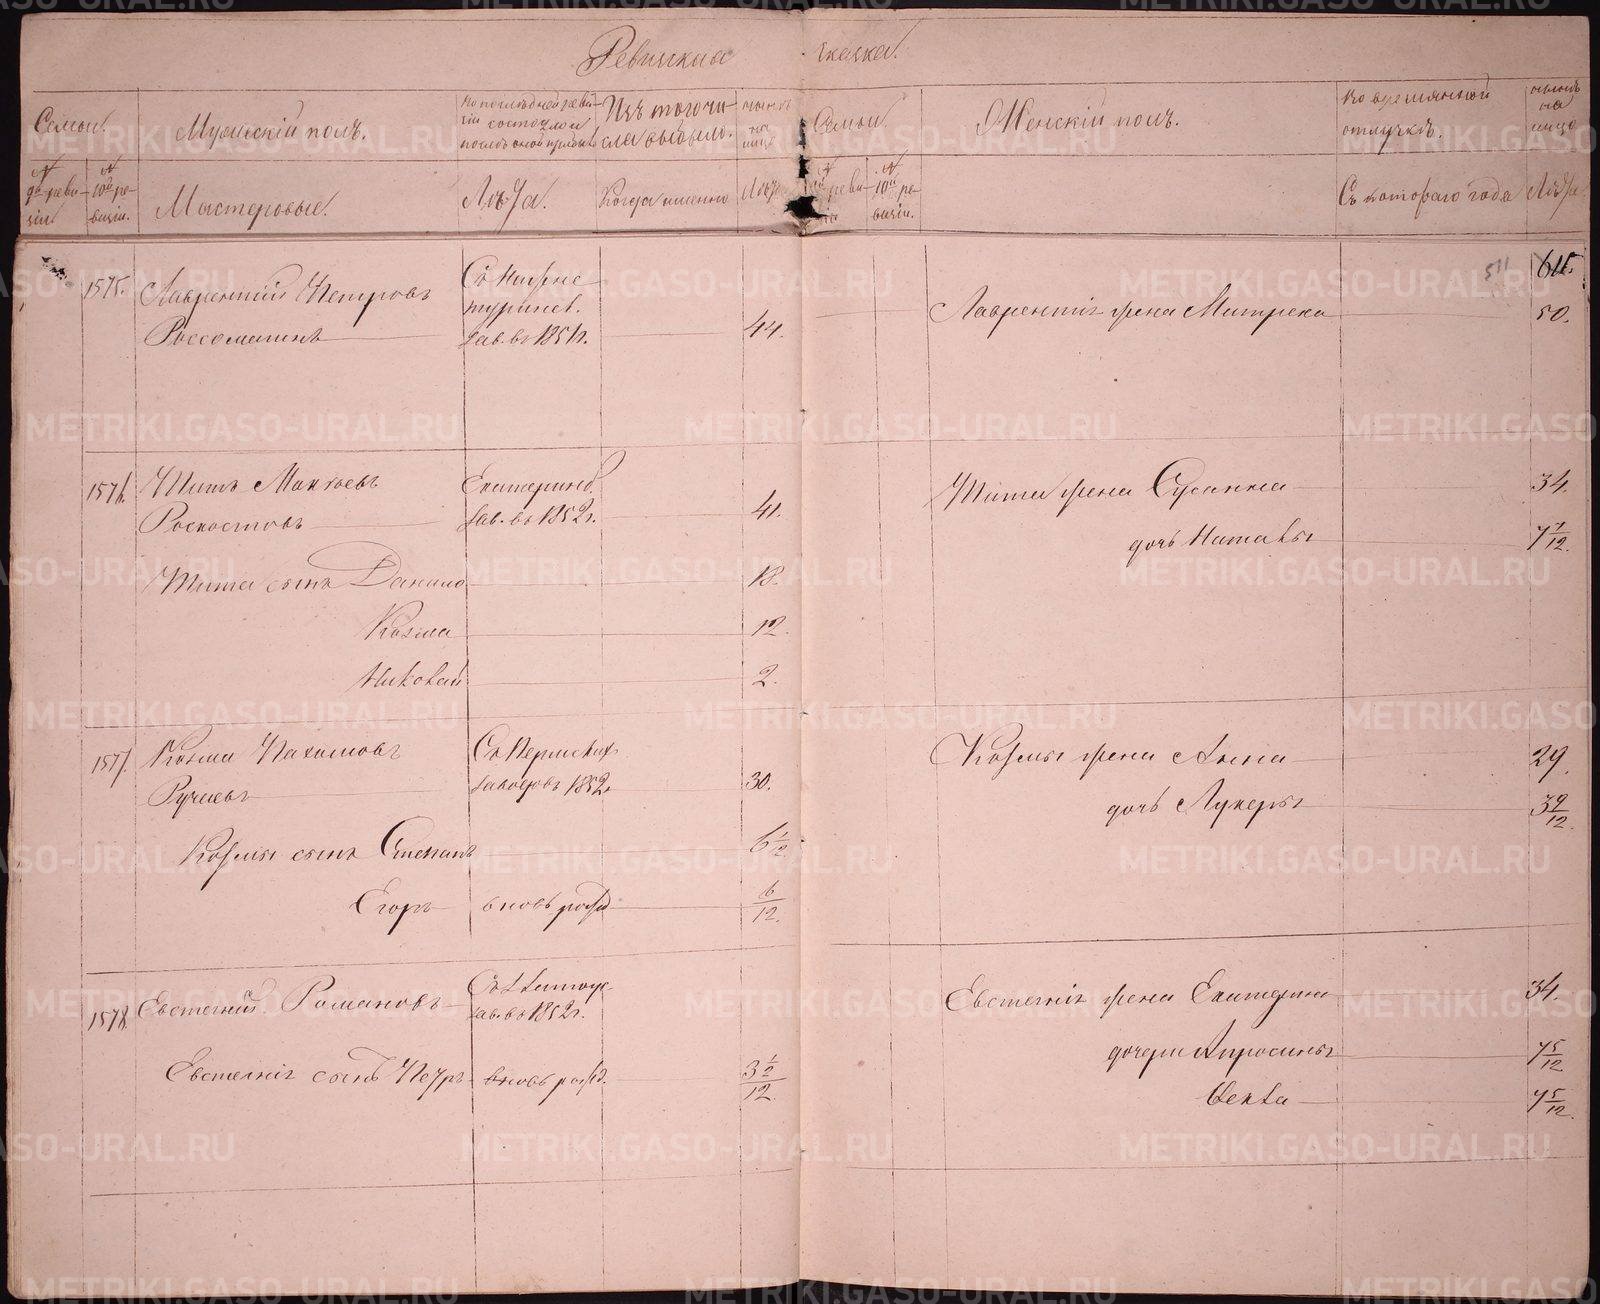 Ревизская сказка.
Семьи.
Мужескій полъ.
По последней реви-
зіи состояло и
после оной прибыло
Изъ того чи-
сла выбыло.
ныне
на
лицо
Семьи
Женскій полъ.
Во временной
отлучкѣ.
ныне
на
лицо
№
9й реви-
зіи
№
10й ре-
визіи.
Мастеровые.
Лѣта.
Когда именно
Лѣта
№
реви-
зіи
№
10й ре-
визіи.
Съ котораго года
Лѣта
511 615.
1575. Лаврентій Петровъ
Россомагинъ
Съ Нижне
туринск.
зав. въ 1851 г.
44.
Лаврентія жена Матрена 50.
1576. Титъ Макѣевъ
Роскостовъ
Екатеринб.
зав. въ 1852 г.
41.
Тита жена Сусанна 34.
дочь Наталья 7 1/12.
Тита сынъ Данило 18.
Козма 12.
Николай 2.
1577. Козма Пахомовъ
Ручьевъ
Съ Пермскихъ
заводовъ 1852 г.
30.
Козмы жена Анна 29.
дочь Лукерья 3 9/12.
Козмы сынъ Степанъ 6 1/12
Егоръ вновь рожд. 6/12.
1578. Евстегней Романовъ
Съ Златоус
зав. въ 1852 г.
Евстегнія жена Екатерина 34.
дочери Апросинья 7 5/12
Фекла 7 5/12.
Евстегнія сынъ Петръ вновь рожд. 3 1/2/12.
METRIKI.GASO-URAL.RU